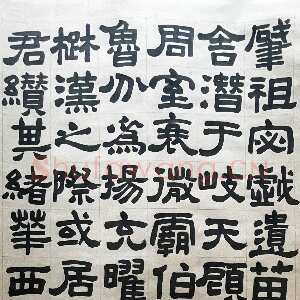 肇祖宓戲遺苗
舍潛于岐天顧
周室衰微霸伯
魯分為揚充曜
楚漢之際或居
君纘其緒華西